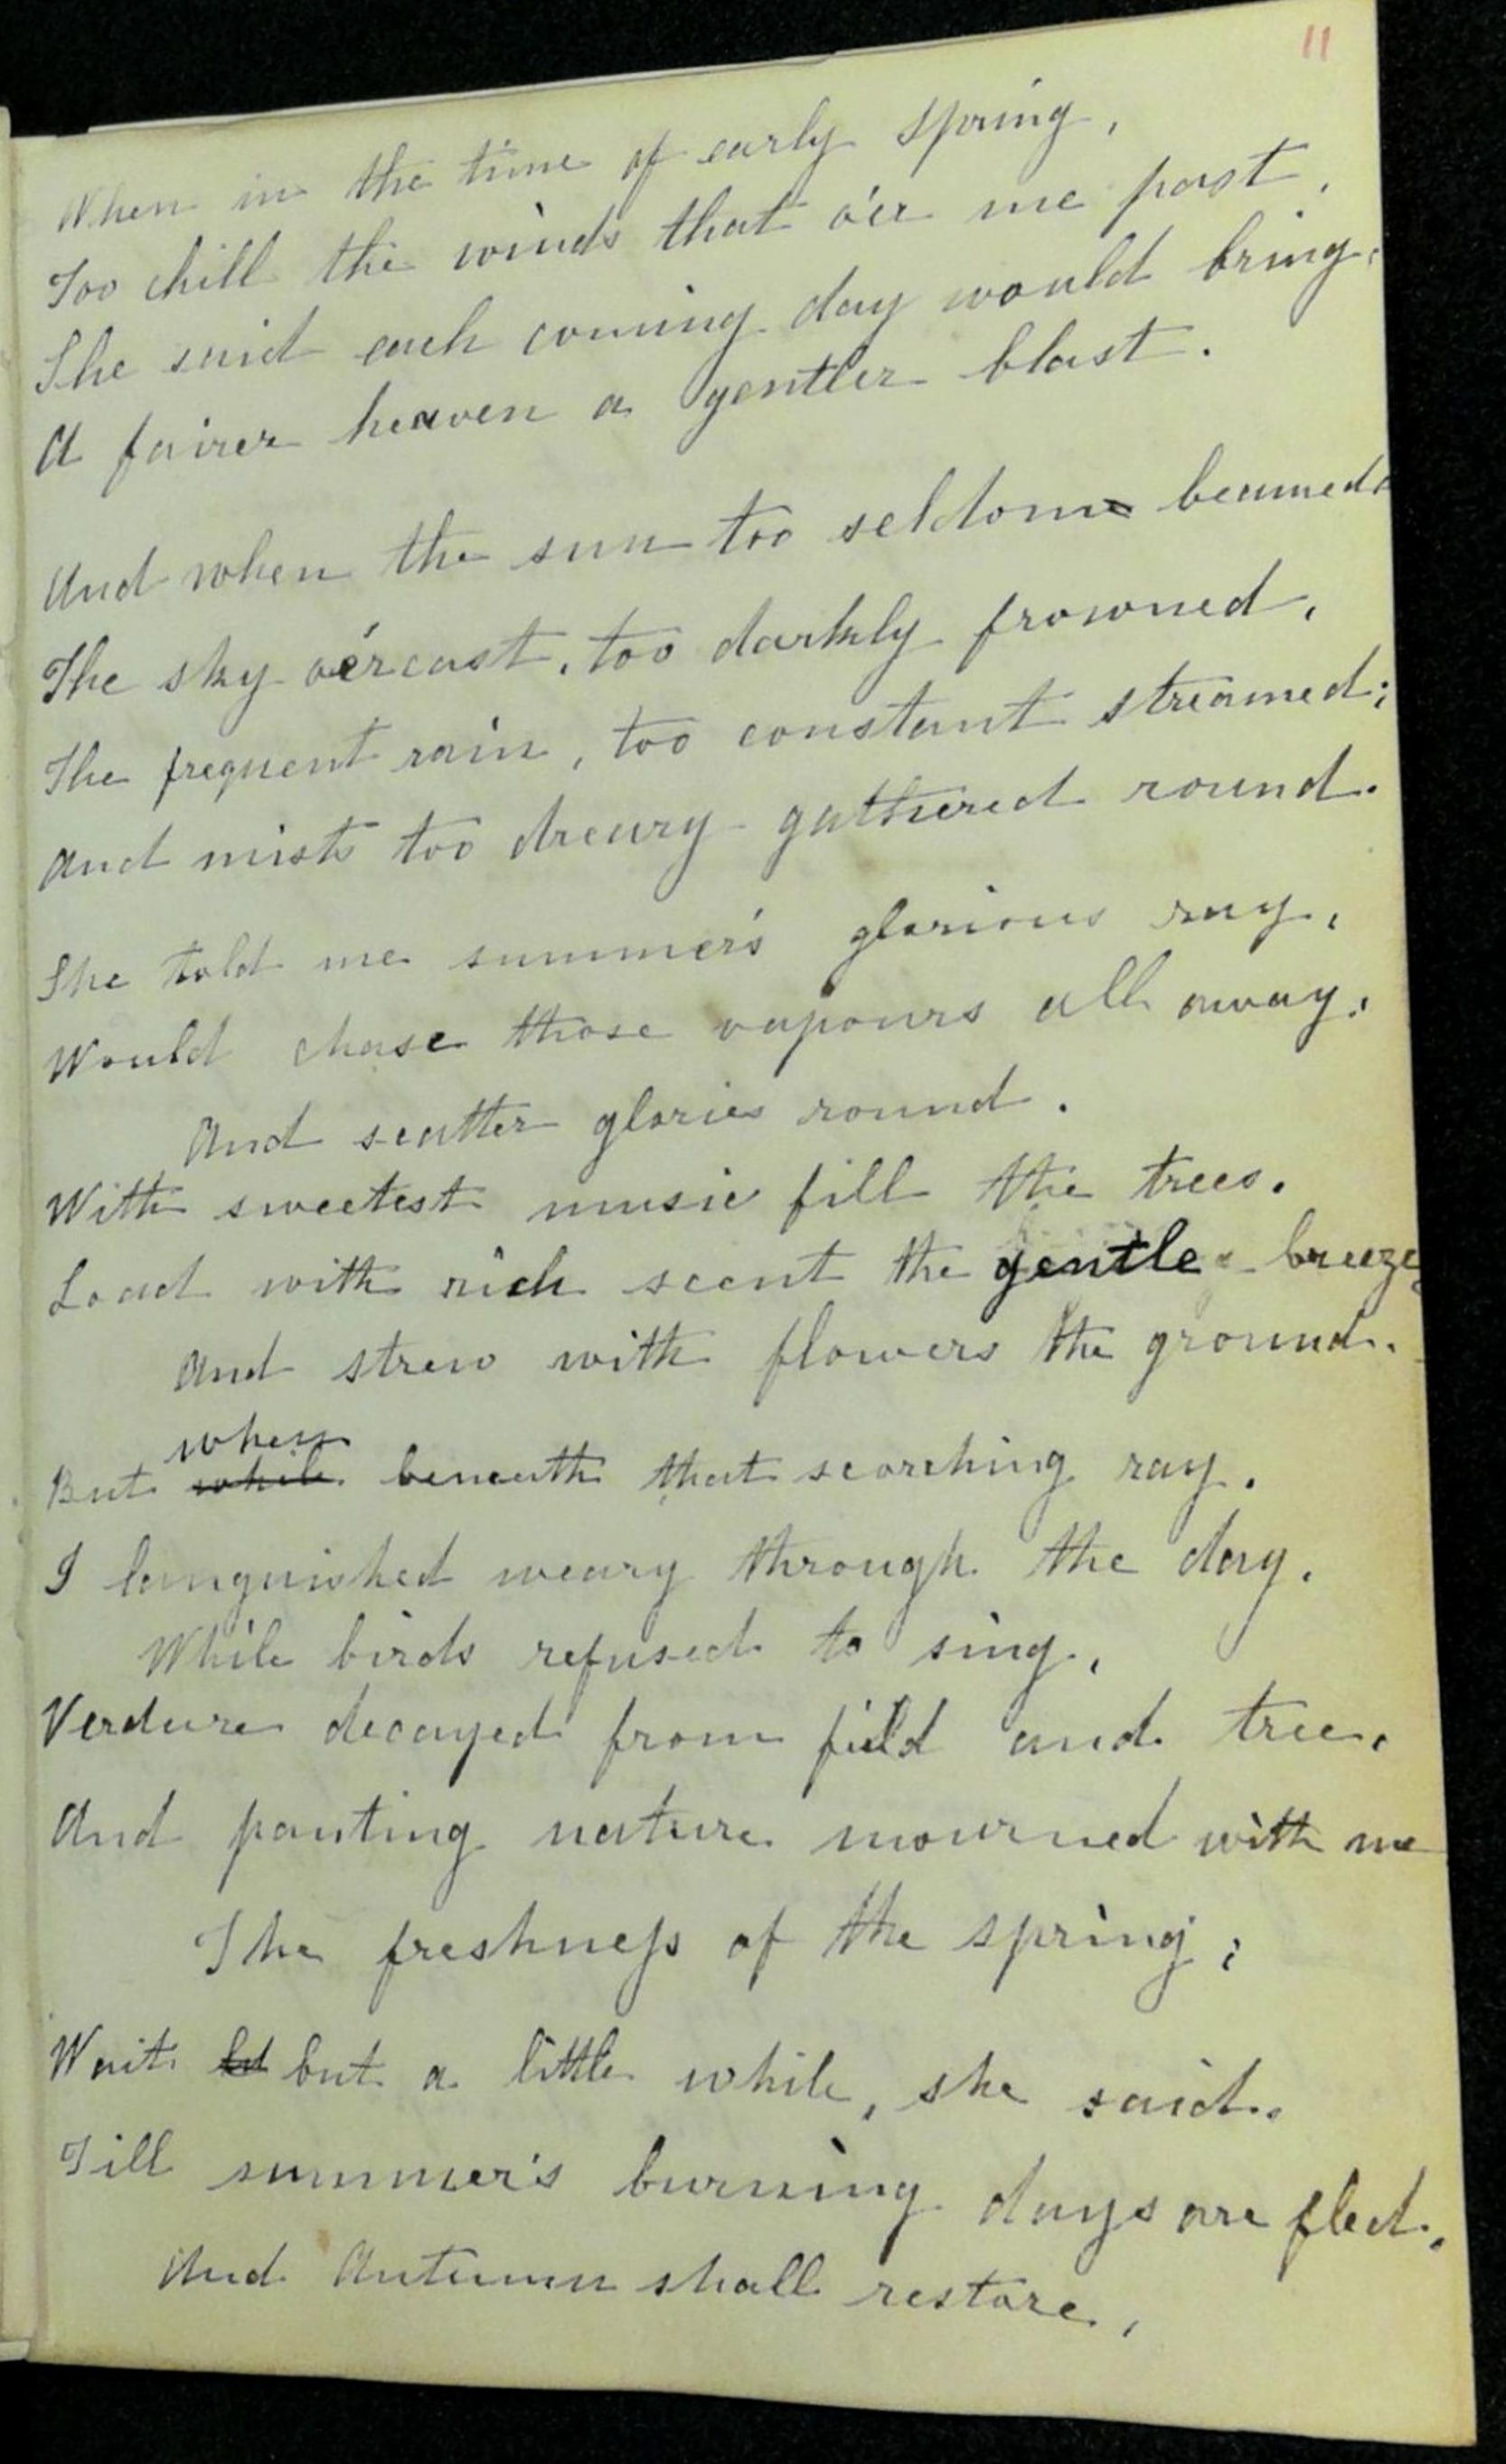 11
When in the time of early spring,
Too chill the winds that o'er me past,
She said each coming day would bring,
A fairer heaven a gentler blast.
And when the sun too seldom beamed,
The sky o'ercast, too darkly frowned,
The frequent rain, too constant streamed;
And mists too dreary gathered round.
She told me summer's glorious ray,
Would chase those vapours all away,
And scatter glories round.
With sweetest music fill the trees.
Load with rich scent the gentle breeze,
And strew with flowers the ground.
when
But while beneath that scorching ray.
I languished weary through the day.
While birds refused to sing,
Verdure decayed from field and tree,
And panting nature mourned with me
The freshneſs of the spring;
Wait but a little while, she said.
Till summer's burning days are fled,
And Autumn shall restore,